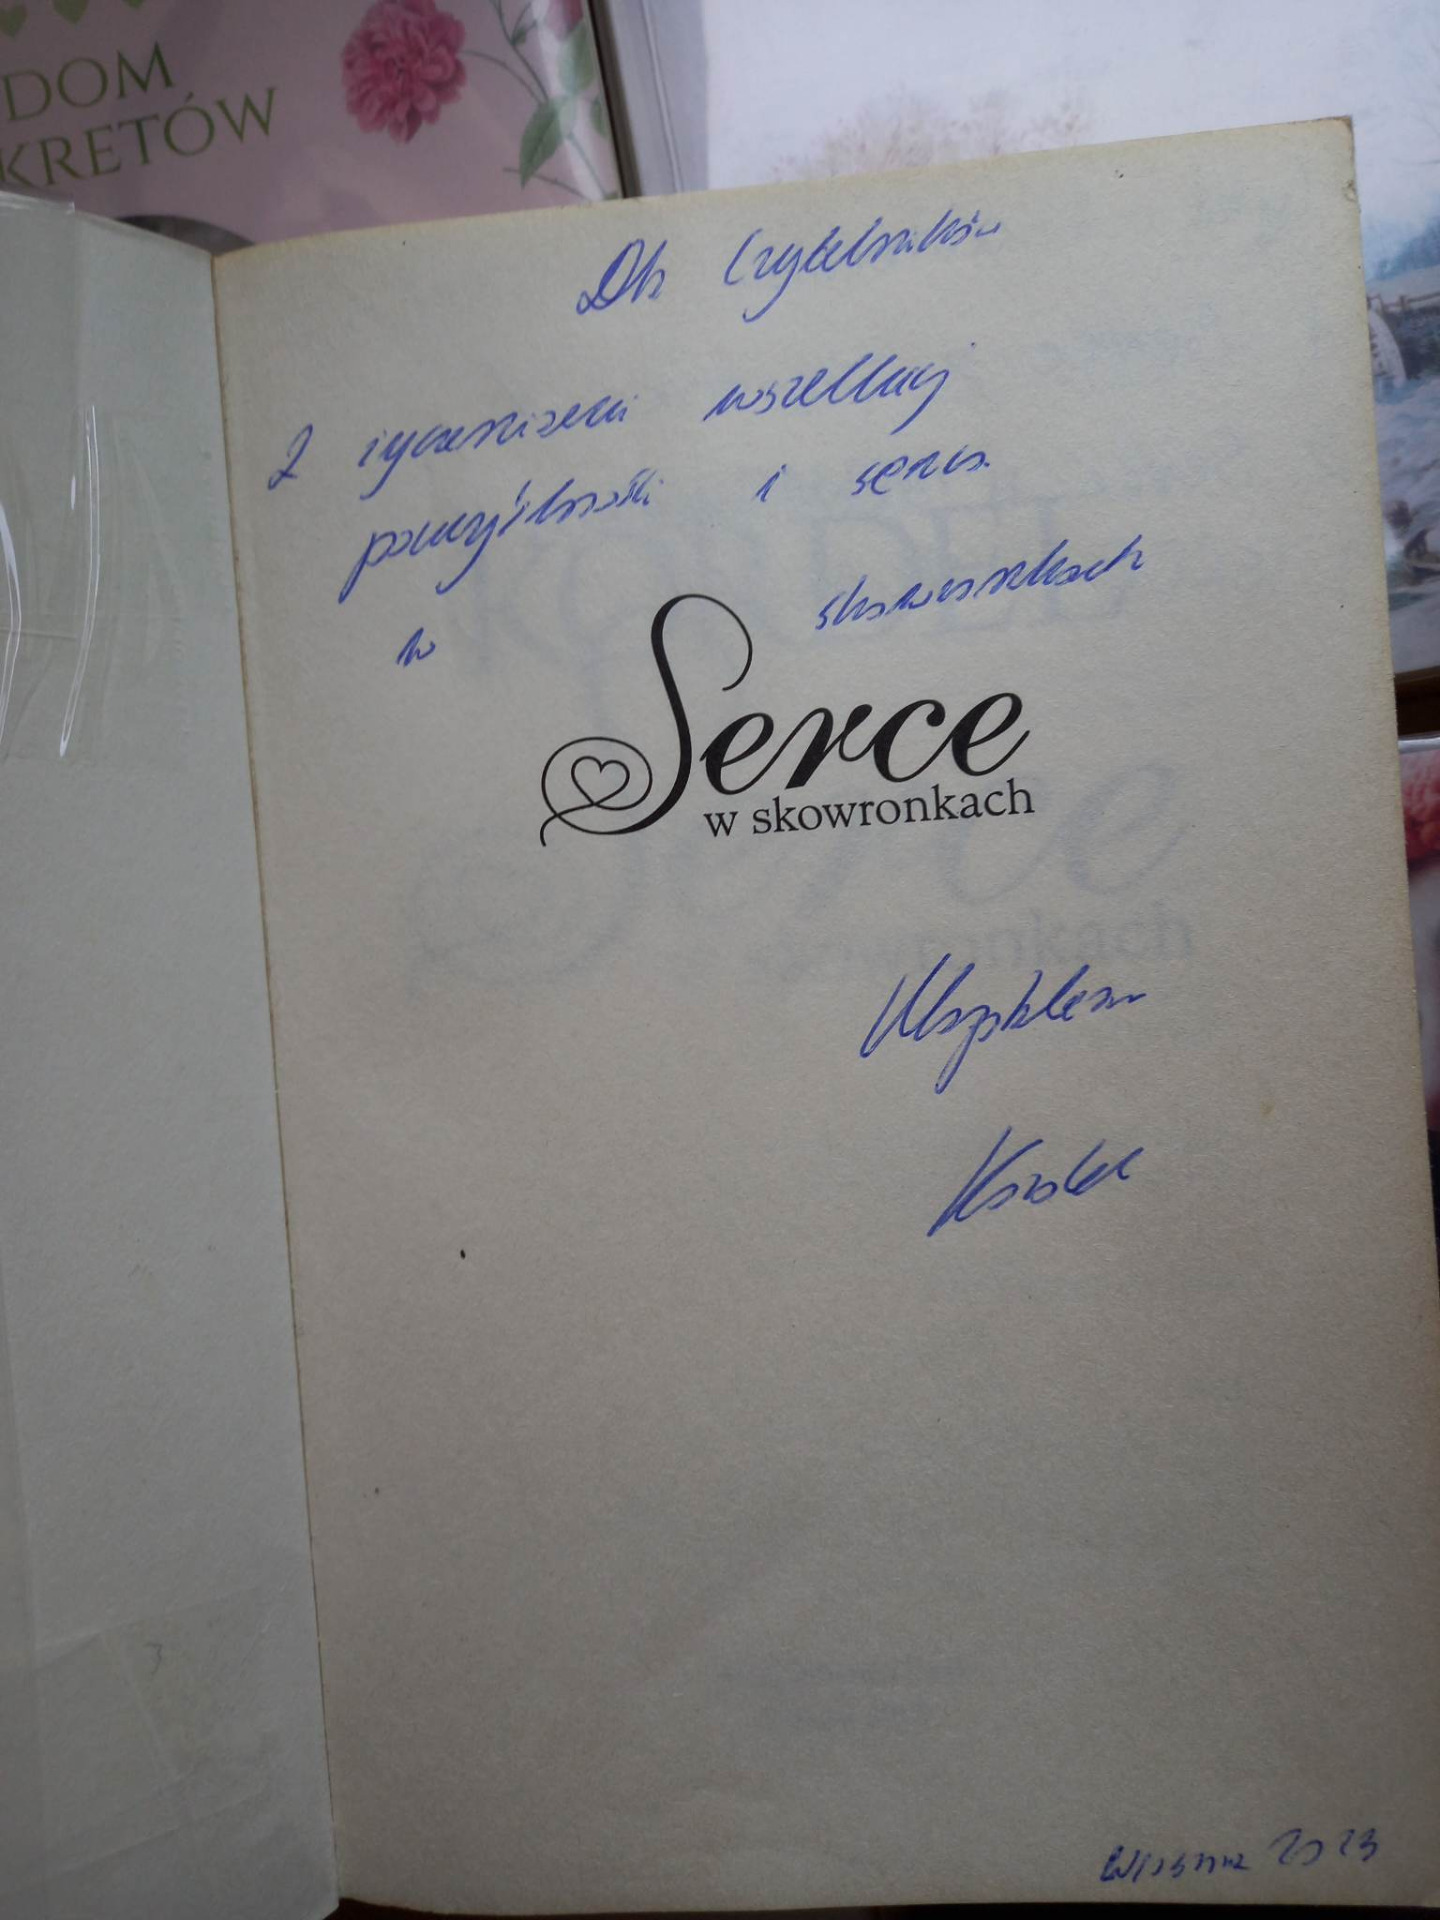 DOM
KRETÓW
Dla Czytelników
Z życzeniami wszelkiej
pomyślności i serca
w skowronkach
Serce
w skowronkach
Magdalena
Kordel
Wiosna 2023
3